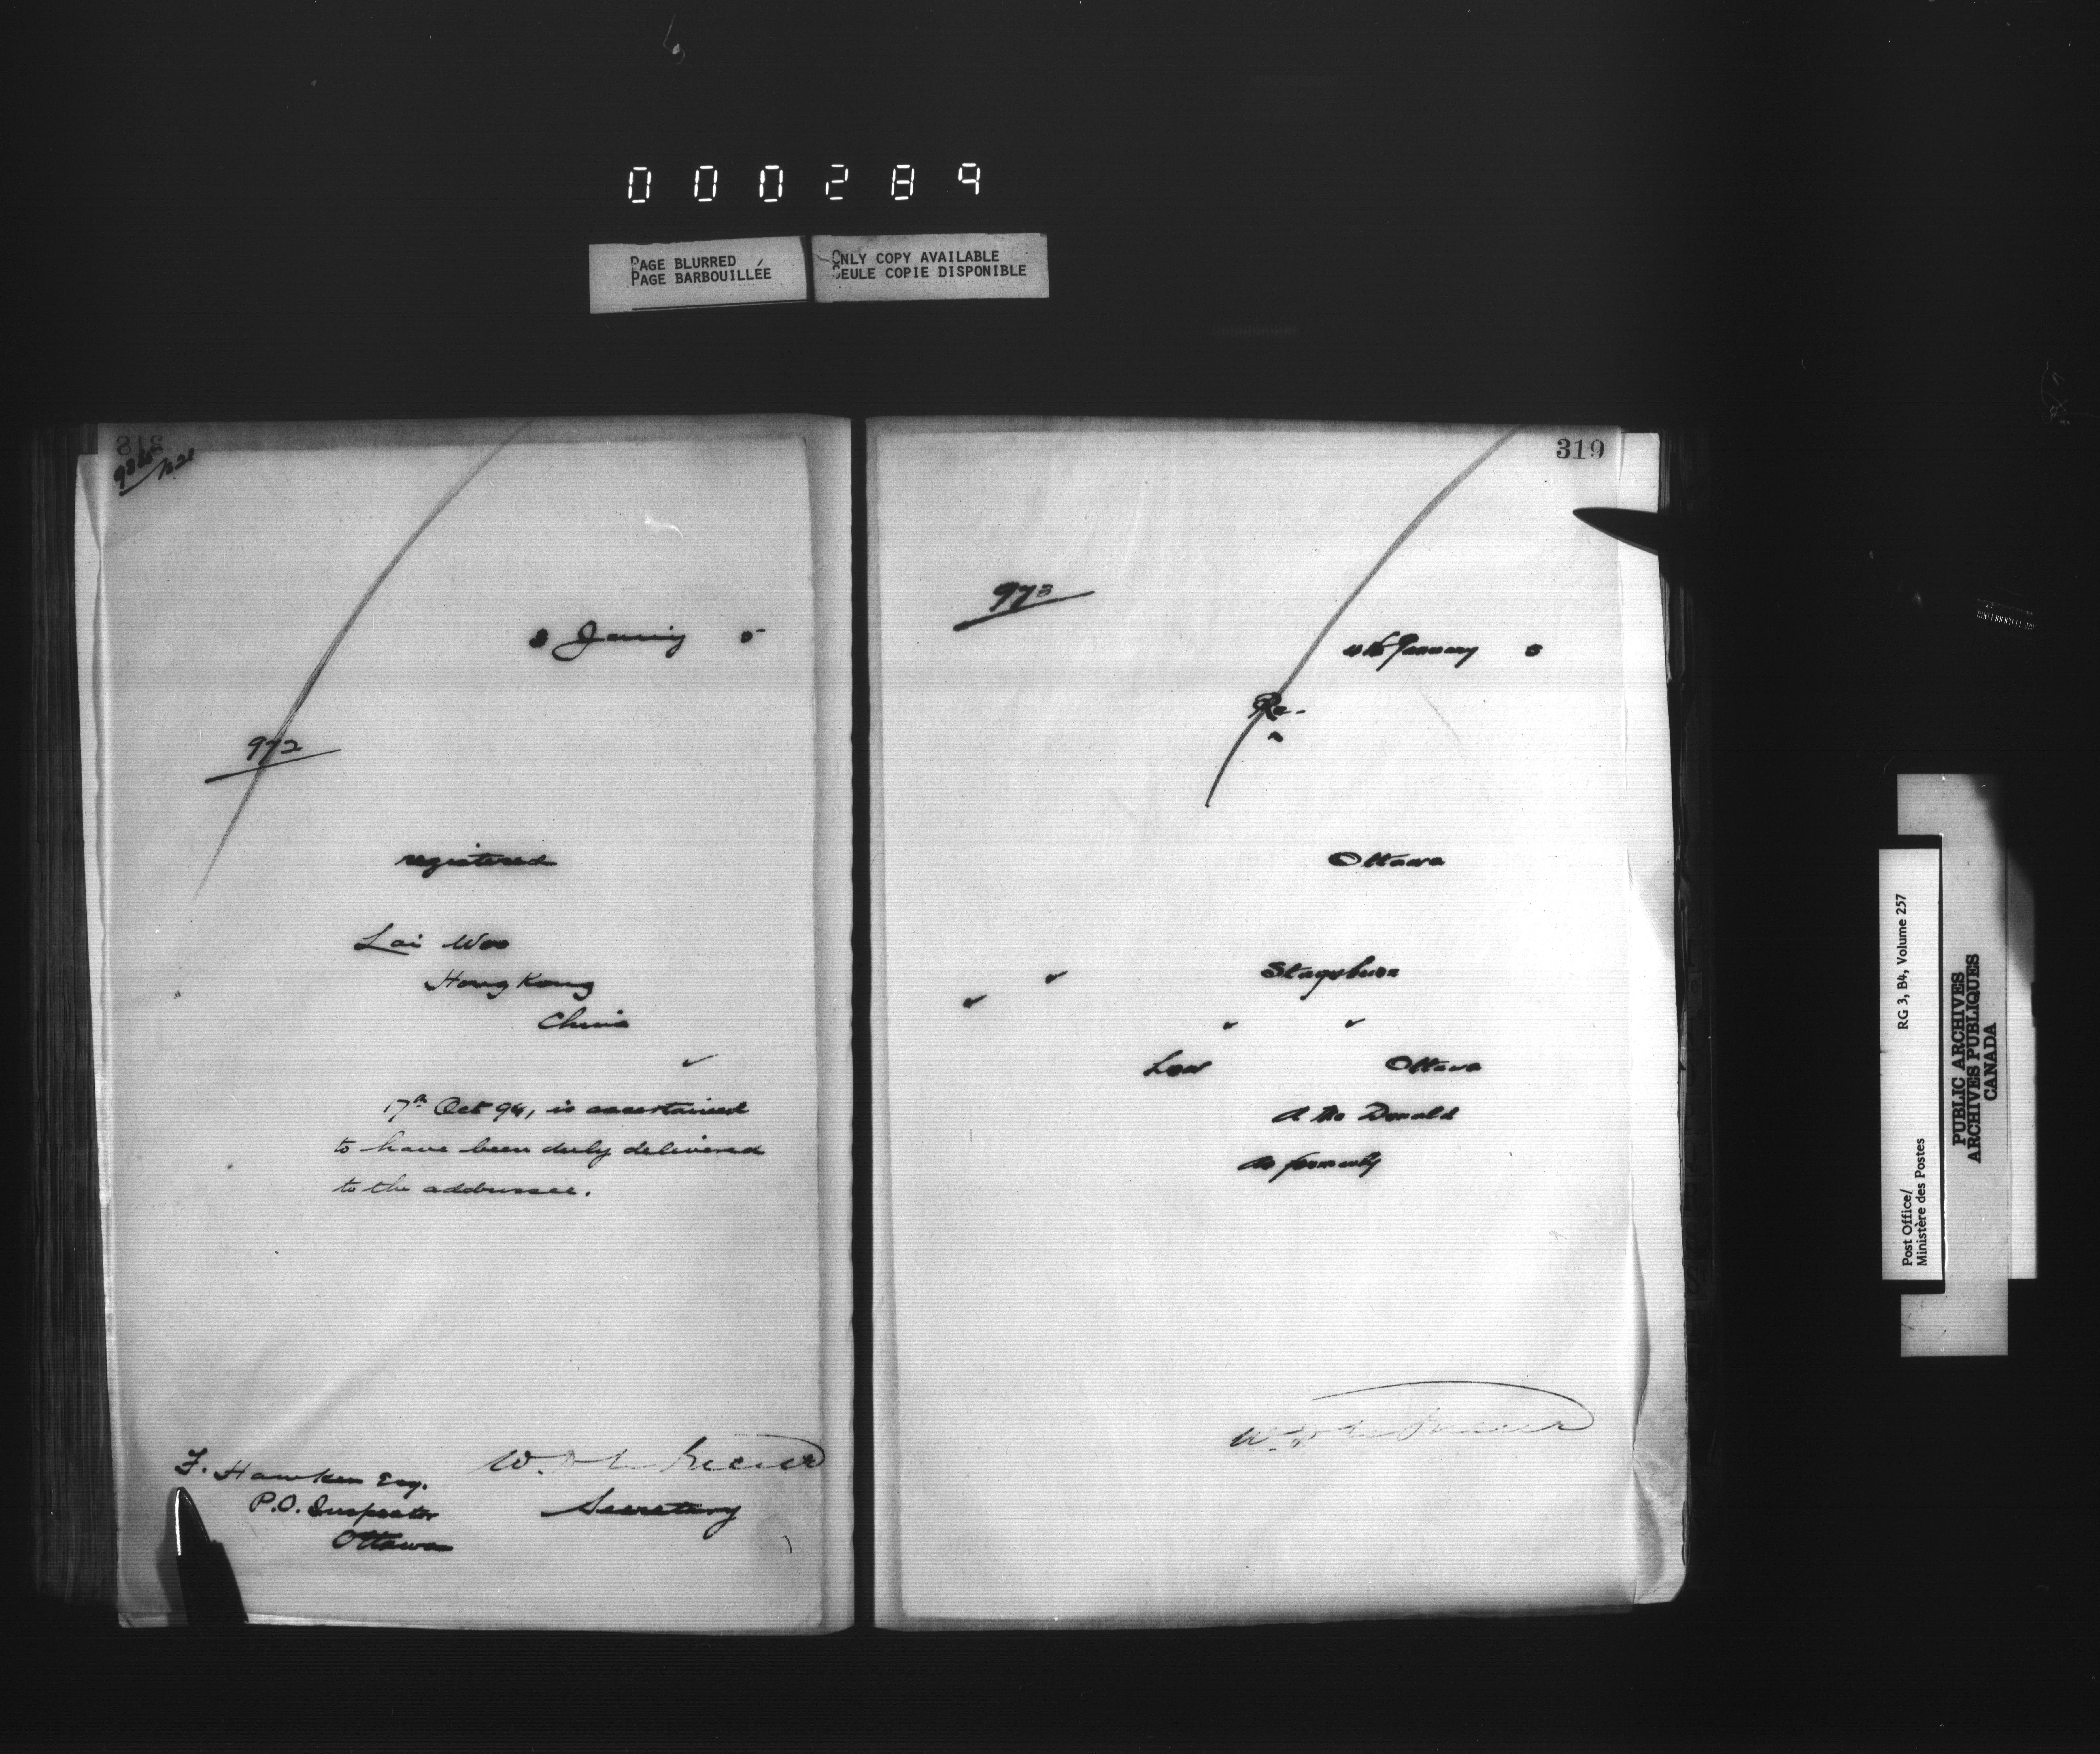 000289
PAGE BLURRED
PAGE BARBOUILLÉE
ONLY COPY AVAILABLE
SEULE COPIE DISPONIBLE
318
5
972
registered
Lai Woo
Hong Kong
China
17th Oct 94, is ascertained
to have been duly delivered
to the addressee.
F. Hawken Esq.
P.O. Inspector
Ottawa
Secretary
319
973
4th January 5
Re-
Ottawa
Stagsburn
Low Ottawa
A Mc Donald
as formerly
Post Office/
Ministère des Postes
RG 3, B4, Volume 257
PUBLIC ARCHIVES
ARCHIVES PUBLIQUES
CANADA